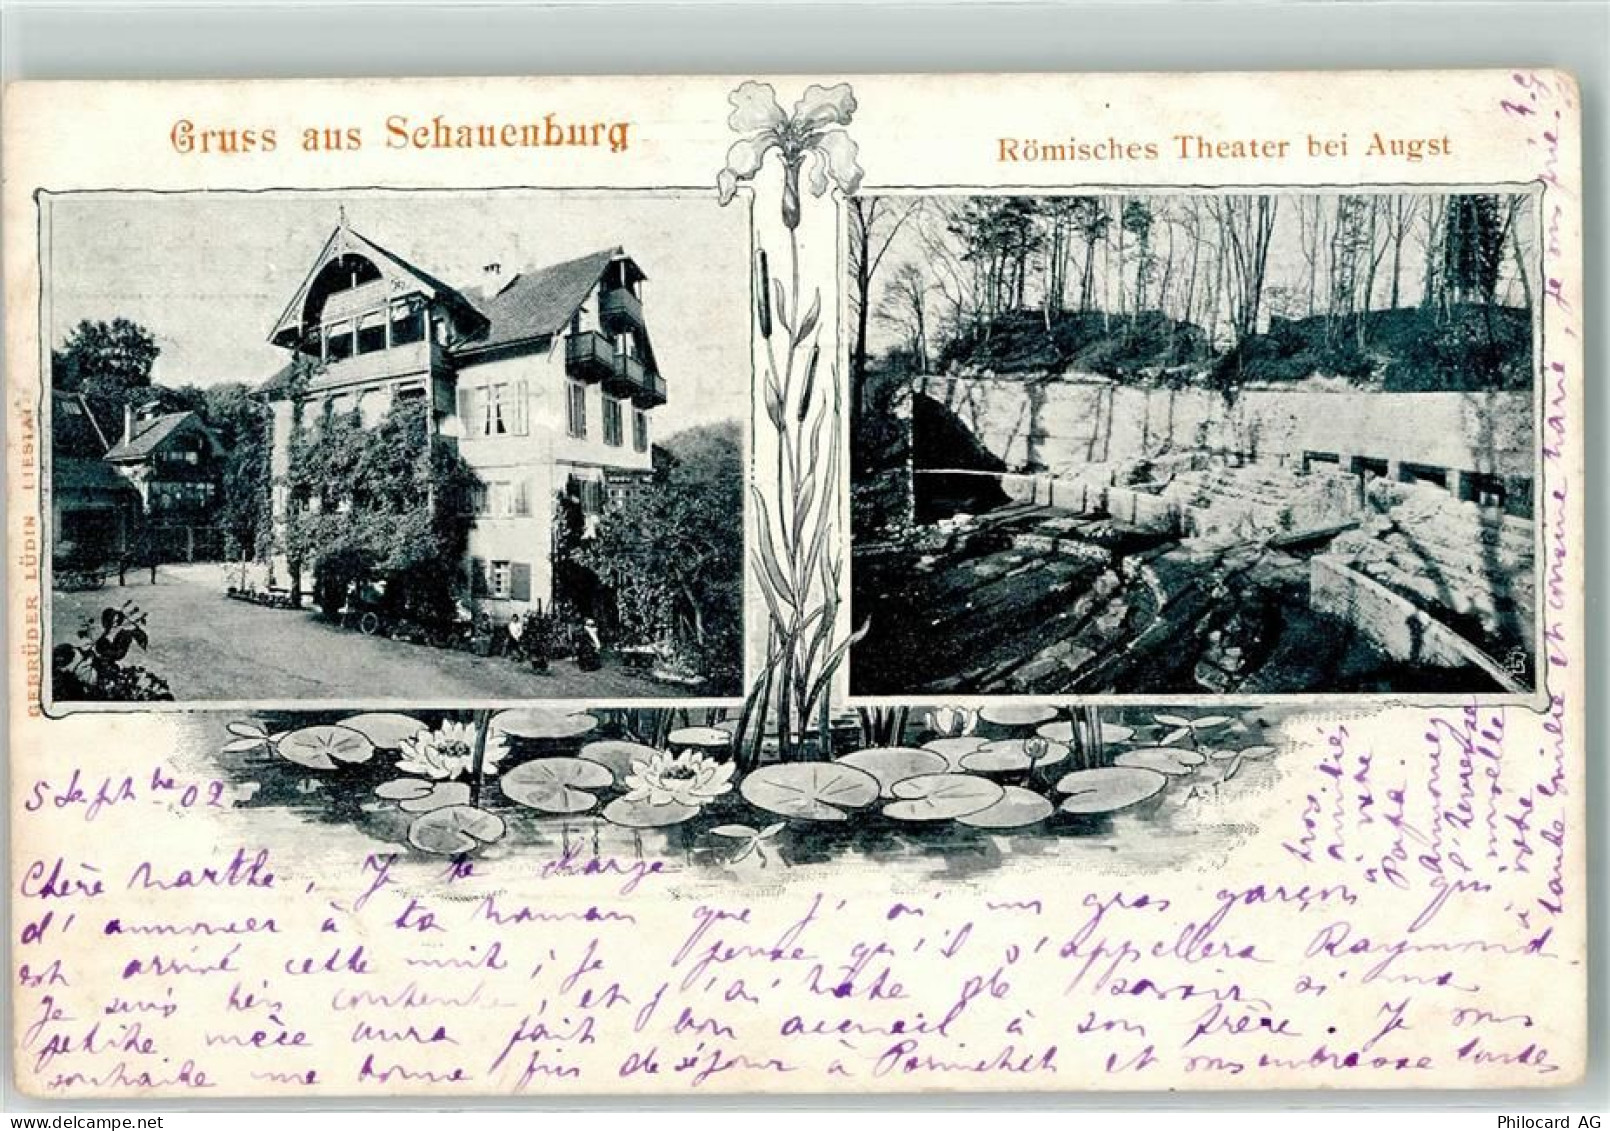 Gruss aus Schauenburg
Römisches Theater bei Augst
GEBRÜDER LÜDIN LIESTAL
A.T.
5 Septbre 02
Chère Marthe, Je te charge
d'annoncer à ta maman que j'ai un gros garçon qui
est arrivé cette nuit; je pense qu'il s'appellera Raymond
Je suis très contente, et j'ai hâte de savoir si ma
petite mèce aura fait bon accueil à son frère. Je vous
souhaite une bonne fin de séjour à Pornichet et vous embrasse toutes
tante Emilie et cousine Marie, je vous prie.
trois
amitiés
à votre
Papa.
annoncez
l'heureuse
nouvelle
à votre
Philocard AG